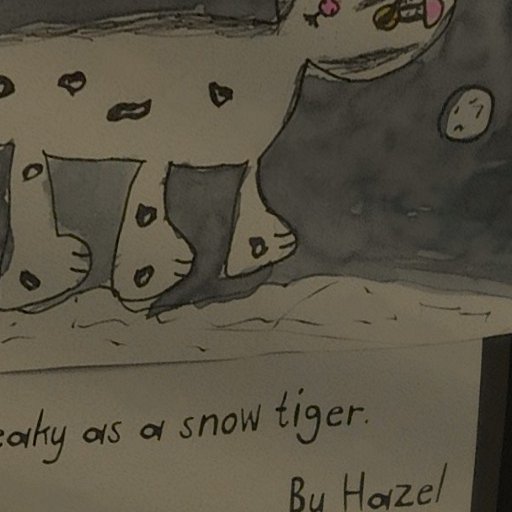 eaky as a snow tiger.
By Hazel